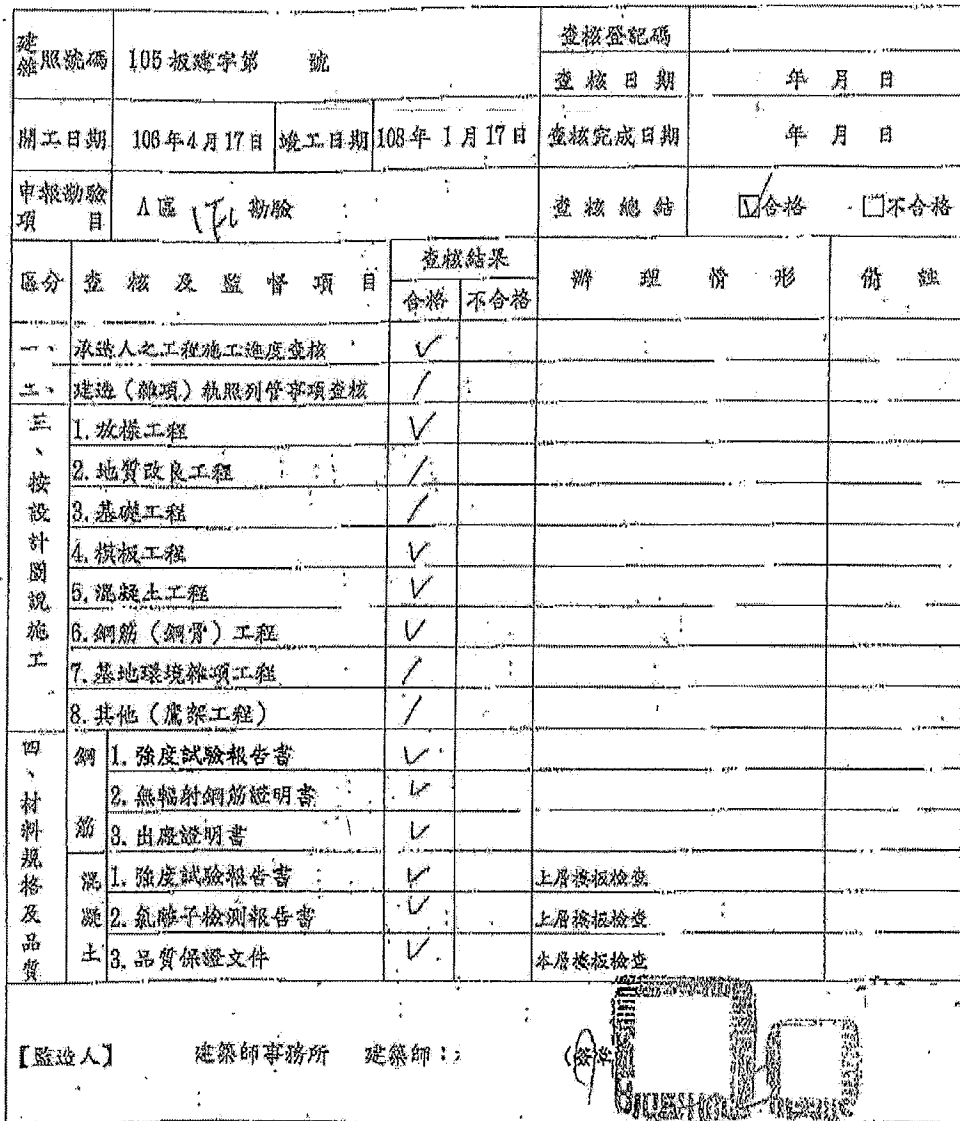 建雜照號碼 105板建字第 號 查核登記碼
查核日期 年 月 日
開工日期 106年4月17日 竣工日期 108年1月17日 查核完成日期 年 月 日
申報勘驗項目 A區 勘驗 查核總結 ☑合格 □不合格
區分 查核及監督項目 查核結果 辦理情形 備註
合格 不合格
一、 承造人之工程施工進度查核 ✓
二、 建造（雜項）執照列管事項查核 /
三、按設計圖說施工
1.放樣工程 ✓
2.地質改良工程 /
3.基礎工程 /
4.模板工程 ✓
5.混凝土工程 ✓
6.鋼筋（鋼骨）工程 ✓
7.基地環境雜項工程 /
8.其他（鷹架工程） /
四、材料規格及品質
鋼筋
1.強度試驗報告書 ✓
2.無輻射鋼筋證明書 ✓
3.出廠證明書 ✓
混凝土
1.強度試驗報告書 ✓ 上層樓板檢查
2.氯離子檢測報告書 ✓ 上層樓板檢查
3.品質保證文件 ✓ 本層樓板檢查
【監造人】 建築師事務所 建築師：